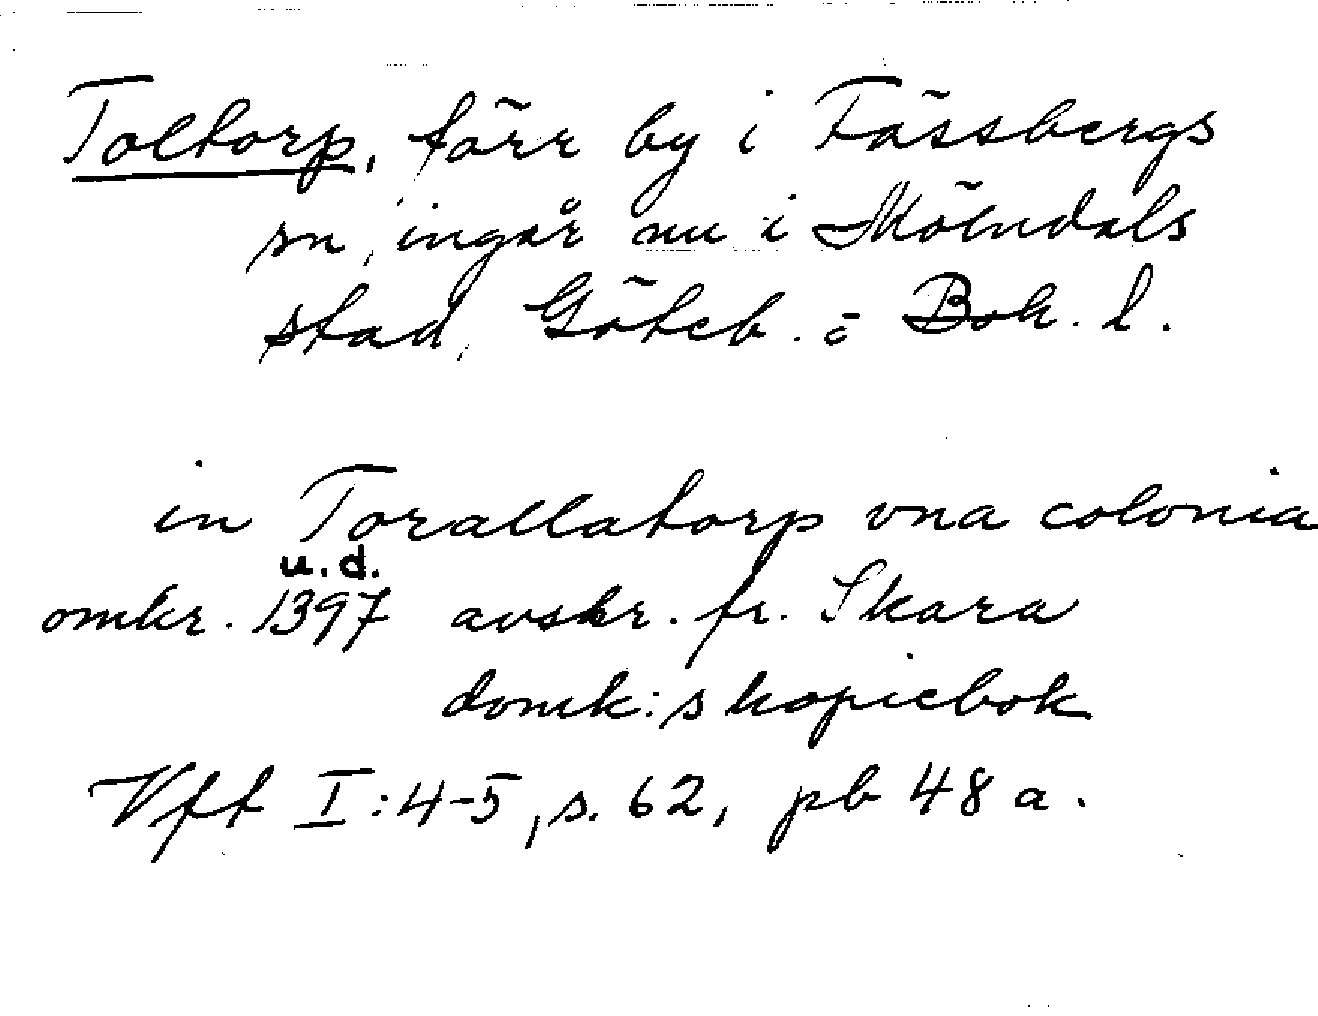 Toltorp, förr by i Fässbergs
sn, ingår nu i Mölndals
stad, Göteb. o Boh. l.
in Torallatorp vna colonia
u.d.
omkr. 1397 avskr. fr. Skara
domk:s kopiebok
Vft I:4-5, s. 62, pb 48 a.